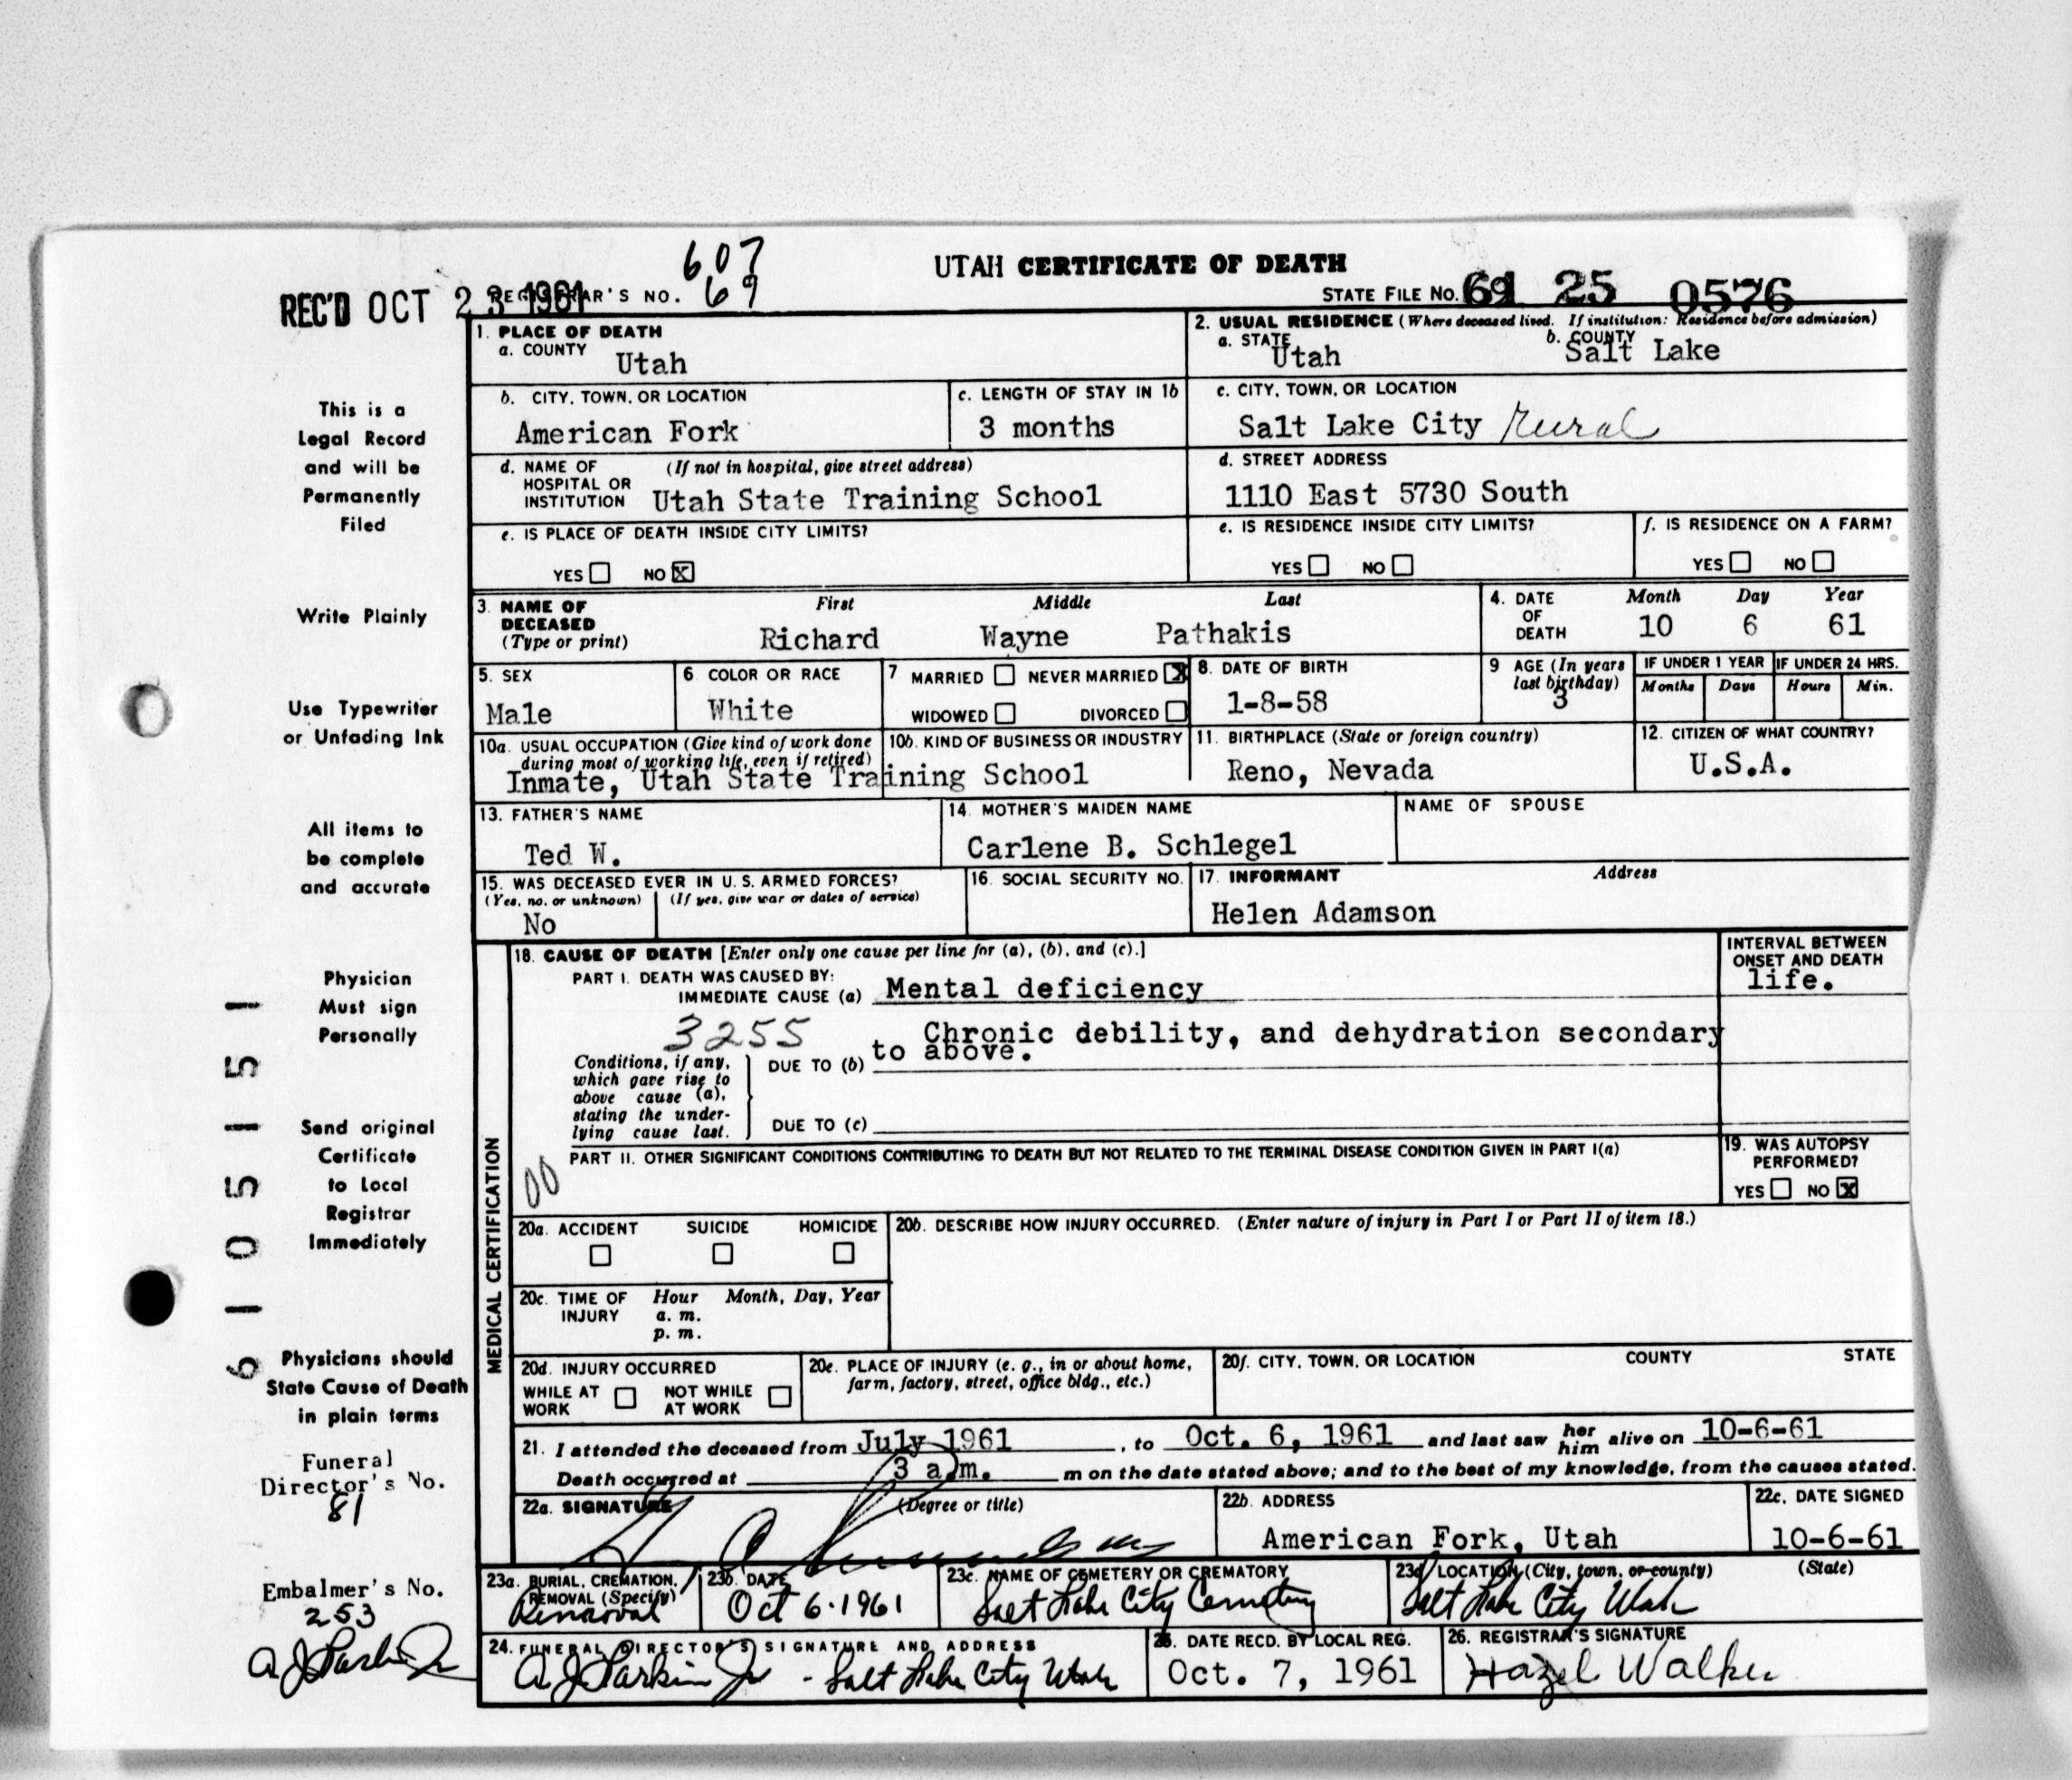 607
UTAH CERTIFICATE OF DEATH
REC'D OCT 23 1961
REGISTRAR'S NO. 69
STATE FILE NO. 61 25 0576
1. PLACE OF DEATH
a. COUNTY
Utah
2. USUAL RESIDENCE (Where deceased lived. If institution: Residence before admission)
a. STATE
Utah
b. COUNTY
Salt Lake
b. CITY, TOWN, OR LOCATION
American Fork
c. LENGTH OF STAY IN 1b
3 months
c. CITY, TOWN, OR LOCATION
Salt Lake City Rural
d. NAME OF HOSPITAL OR INSTITUTION
(If not in hospital, give street address)
Utah State Training School
d. STREET ADDRESS
1110 East 5730 South
e. IS PLACE OF DEATH INSIDE CITY LIMITS?
YES NO X
e. IS RESIDENCE INSIDE CITY LIMITS?
YES NO
f. IS RESIDENCE ON A FARM?
YES NO
3. NAME OF DECEASED
(Type or print)
First Middle Last
Richard Wayne Pathakis
4. DATE OF DEATH
Month Day Year
10 6 61
5. SEX
Male
6. COLOR OR RACE
White
7 MARRIED NEVER MARRIED X
WIDOWED DIVORCED
8. DATE OF BIRTH
1-8-58
9 AGE (In years last birthday)
3
IF UNDER 1 YEAR
Months Days
IF UNDER 24 HRS.
Hours Min.
10a. USUAL OCCUPATION (Give kind of work done during most of working life, even if retired)
10b. KIND OF BUSINESS OR INDUSTRY
Inmate, Utah State Training School
11. BIRTHPLACE (State or foreign country)
Reno, Nevada
12. CITIZEN OF WHAT COUNTRY?
U.S.A.
13. FATHER'S NAME
Ted W.
14. MOTHER'S MAIDEN NAME
Carlene B. Schlegel
NAME OF SPOUSE
15. WAS DECEASED EVER IN U.S. ARMED FORCES?
(Yes, no, or unknown) (If yes, give war or dates of service)
No
16. SOCIAL SECURITY NO.
17. INFORMANT Address
Helen Adamson
MEDICAL CERTIFICATION
18. CAUSE OF DEATH [Enter only one cause per line for (a), (b), and (c).]
INTERVAL BETWEEN ONSET AND DEATH
PART I. DEATH WAS CAUSED BY:
IMMEDIATE CAUSE (a) Mental deficiency
life.
3255
Chronic debility, and dehydration secondary
to above.
Conditions, if any, which gave rise to above cause (a), stating the underlying cause last.
DUE TO (b)
DUE TO (c)
PART II. OTHER SIGNIFICANT CONDITIONS CONTRIBUTING TO DEATH BUT NOT RELATED TO THE TERMINAL DISEASE CONDITION GIVEN IN PART I(a)
00
19. WAS AUTOPSY PERFORMED?
YES NO X
20a. ACCIDENT SUICIDE HOMICIDE
20b. DESCRIBE HOW INJURY OCCURRED. (Enter nature of injury in Part I or Part II of item 18.)
20c. TIME OF INJURY Hour Month, Day, Year
a. m.
p. m.
20d. INJURY OCCURRED
WHILE AT WORK NOT WHILE AT WORK
20e. PLACE OF INJURY (e. g., in or about home, farm, factory, street, office bldg., etc.)
20f. CITY, TOWN, OR LOCATION COUNTY STATE
21. I attended the deceased from July 1961, to Oct. 6, 1961 and last saw her him alive on 10-6-61
Death occurred at 3 a.m. m on the date stated above; and to the best of my knowledge, from the causes stated.
22a. SIGNATURE (Degree or title)
22b. ADDRESS
American Fork, Utah
22c. DATE SIGNED
10-6-61
23a. BURIAL, CREMATION, REMOVAL (Specify)
Removal
23b. DATE
Oct 6-1961
23c. NAME OF CEMETERY OR CREMATORY
Salt Lake City Cemetery
23d LOCATION (City, town, or county) (State)
Salt Lake City Utah
24. FUNERAL DIRECTOR'S SIGNATURE AND ADDRESS
A J Larkin Jr - Salt Lake City Utah
25. DATE RECD. BY LOCAL REG.
Oct. 7, 1961
26. REGISTRAR'S SIGNATURE
Hazel Walker
This is a
Legal Record
and will be
Permanently
Filed
Write Plainly
Use Typewriter
or Unfading Ink
All items to
be complete
and accurate
Physician
Must sign
Personally
Send original
Certificate
to Local
Registrar
Immediately
Physicians should
State Cause of Death
in plain terms
Funeral
Director's No.
81
Embalmer's No.
253
A J Larkin Jr
61051551